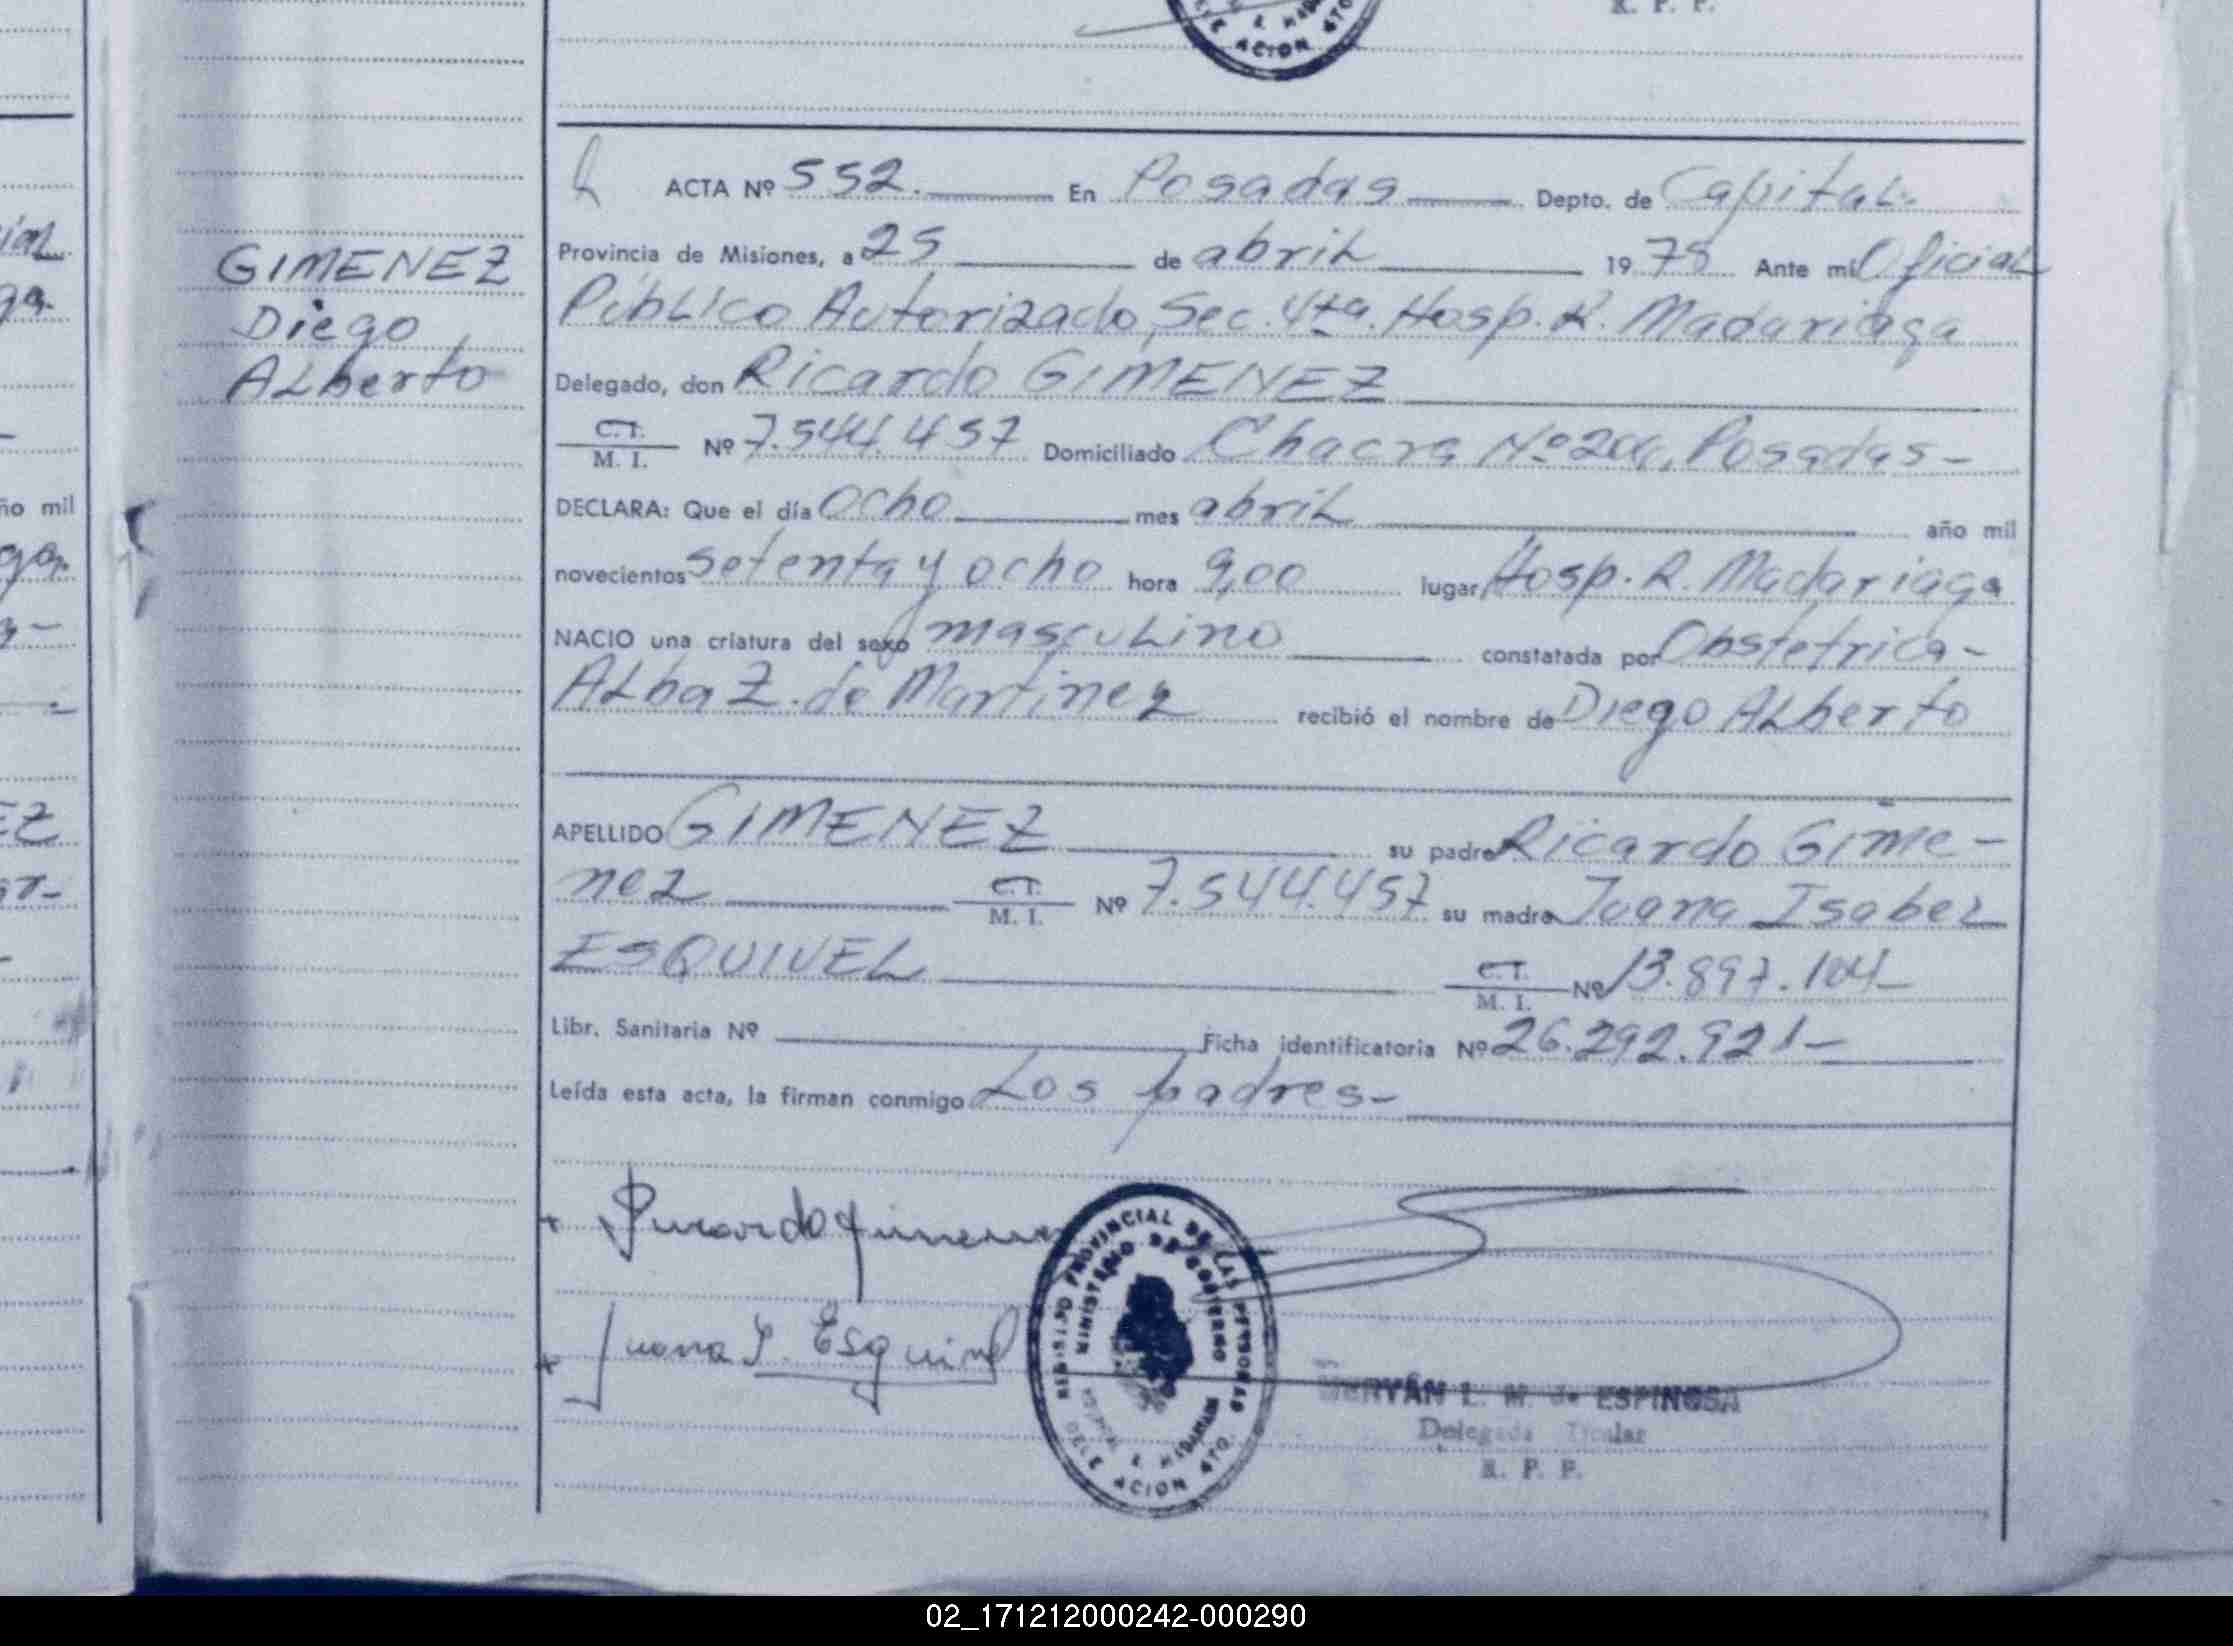 R. P. P.
ACION 4TO.
ACTA Nº 552. En Posadas Depto. de Capital.
Provincia de Misiones, a 25 de abril 1978 Ante mi Oficial
Público Autorizado, Sec. 4ta. Hosp. R. Madariaga
GIMENEZ
Diego
Alberto
Delegado, don Ricardo GIMENEZ
C.I.
M. I. Nº 7.544.457 Domiciliado Chacra Nº 204, Posadas-
DECLARA: Que el día Ocho mes abril año mil
novecientos setenta y ocho hora 9,00 lugar Hosp. R. Madariaga
NACIO una criatura del sexo masculino constatada por Obstetrica-
Alba Z. de Martinez recibió el nombre de Diego Alberto
APELLIDO GIMENEZ su padre Ricardo Gime-
nez C.I. M. I. Nº 7.544.457 su madre Juana Isabel
ESQUIVEL C.I. M. I. Nº 13.897.104-
Libr. Sanitaria Nº Ficha identificatoria Nº 26.292.921-
Leída esta acta, la firman conmigo Los padres-
Ricardo Gimenez
Juana I. Esquivel
REGISTRO PROVINCIAL DE LAS PERSONAS
MINISTERIO DE GOBIERNO
R. MADARIAGA
DELEGACION 4TO.
L. M. de ESPINOSA
Delegada Titular
R. P. P.
ño mil
02_171212000242-000290